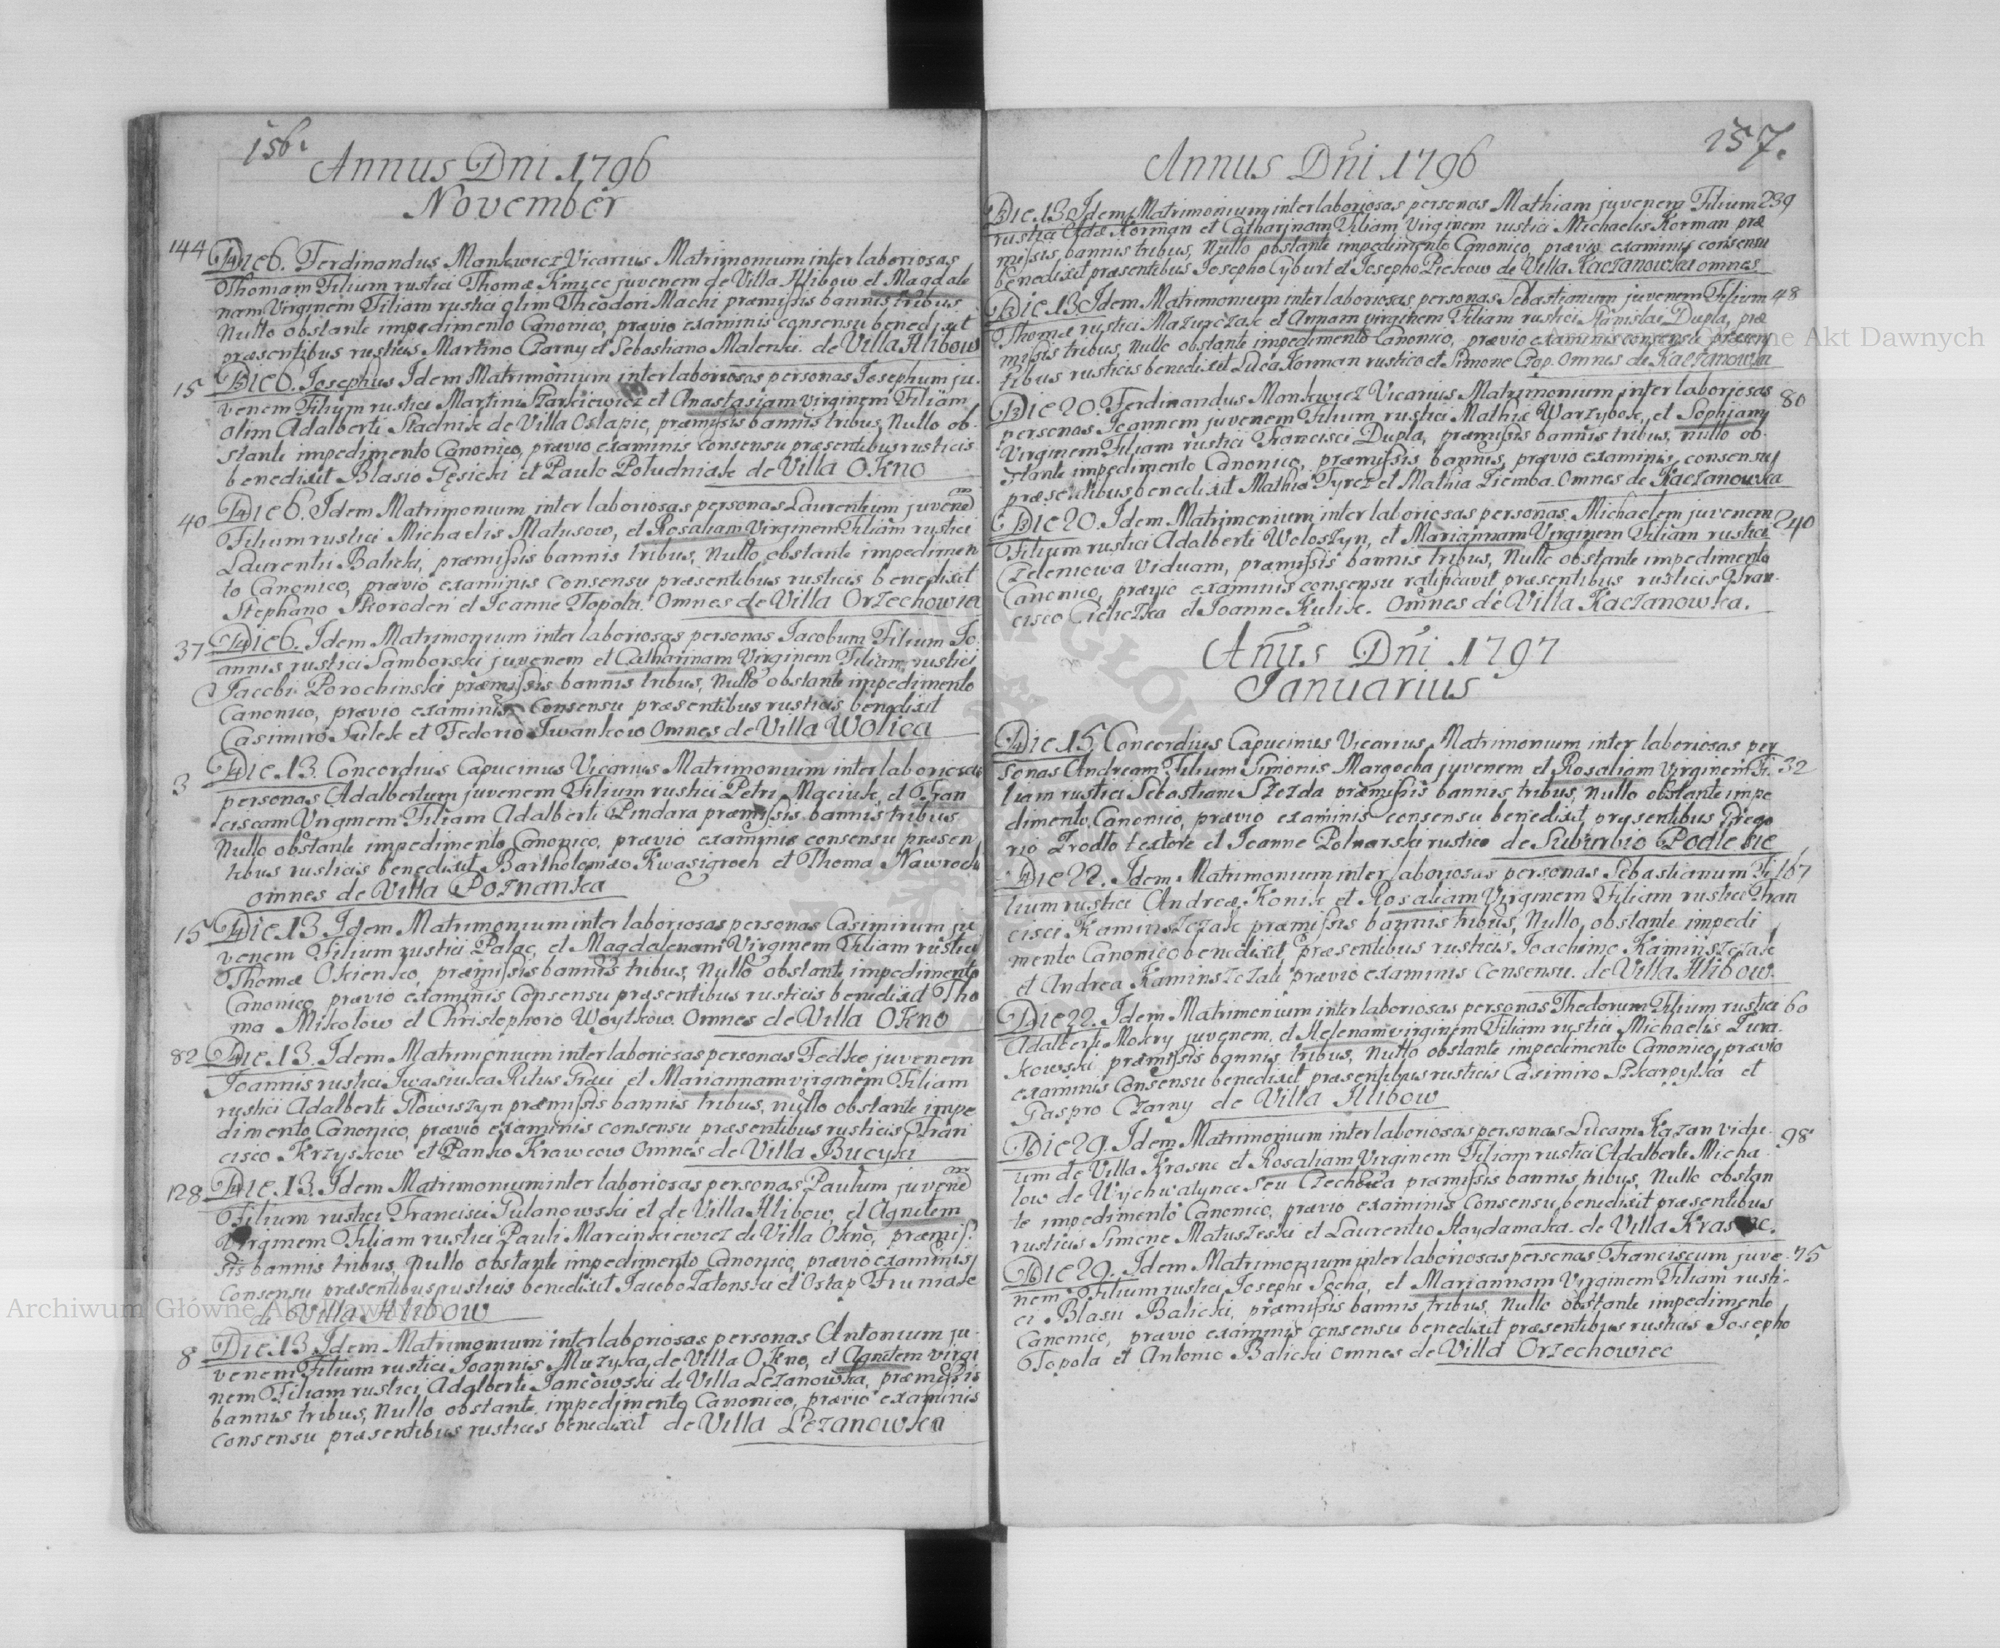 156.
Annus Dni 1796
November
144 Die 6. Ferdinandus Mankwicz Vicarius Matrimonium inter laboriosas
Thomam Filium rustici Thomæ Kmiec juvenem de Villa Hlibow et Magdale
nam Virginem Filiam rustici olim Theodori Machi præmissis bannis tribus
Nullo obstante impedimento Canonico, prævio examinis consensu benedixit
præsentibus rusticis Martino Czarny et Sebastiano Malenki. de Villa Hlibow
15 Die 6. Josephus Idem Matrimonium inter laboriosas personas Josephum ju.
venem Filium rustici Martini Starkiewicz et Anastasiam virginem Filiam
olim Adalberti Stadnik de Villa Oslapie, præmissis bannis tribus, Nullo ob.
stante impedimento Canonico, prævio examinis consensu præsentibus rusticis
benedixit Blasio Gęsicki et Paulo Południak de Villa Okno
40 Die 6. Idem Matrimonium inter laboriosas personas Laurentium juvenem
Filium rustici Michaelis Matusow, et Rosaliam Virginem Filiam rustici
Laurentii Balicki, præmissis bannis tribus, Nullo obstante impedimen
to Canonico, prævio examinis consensu præsentibus rusticis benedixit
Stephano Skoroden et Joanne Topola. Omnes de Villa Orzechowia
37 Die 6. Idem Matrimonium inter laboriosas personas Jacobum Filium Jo.
annis rustici Samborski juvenem et Catharinam Virginem Filiam rustici
Jacobi Porochinski præmissis bannis tribus, Nullo obstante impedimento
Canonico, prævio examinis Consensu præsentibus rusticis benedixit
Casimiro Juilek et Fedorio Iwankow Omnes de Villa Wolica
3 Die 13. Concordius Capucinus Vicarius Matrimonium inter laboriosas
personas Adalbertum juvenem Filium rustici Petri Maciuk, et Fran
ciscam Virginem Filiam Adalberti Pindara præmissis bannis tribus
Nullo obstante impedimento Canonico, prævio examinis consensu præsen
tibus rusticis benedixit Bartholomæo Kwasigroch et Thoma Nawrock
omnes de Villa Poznanka
15 Die 13. Idem Matrimonium inter laboriosas personas Casimirum ju
venem Filium rustici Palac, et Magdalenam Virginem Filiam rustici
Thomæ Okienko, præmissis bannis tribus, Nullo obstante impedimento
Canonico, prævio examinis Consensu præsentibus rusticis benedixit Tho
ma Mikolow et Christophoro Woytkow. Omnes de Villa Okno
82 Die 13. Idem Matrimonium inter laboriosas personas Fedko juvenem
Joannis rustici Iwasiuka Ritus Græci et Mariannam virginem Filiam
rustici Adalberti Słowiszyn præmissis bannis tribus, nullo obstante impe
dimento Canonico, prævio examinis consensu præsentibus rusticis Fran
cisco Krzyskow et Panko Krawcow Omnes de Villa Bucyki
128 Die 13. Idem Matrimonium inter laboriosas personas Paulum juvenem
Filium rustici Francisci Pulanowski et de Villa Hlibow, et Agnetem
Virginem Filiam rustici Pauli Marcinkiewicz de Villa Okno, præmis
sis bannis tribus, Nullo obstante impedimento Canonico, prævio examinis
Consensu præsentibus rusticis benedixit Jacobo Tatonski et Ostap Frumak
de Villa Hlibow
8 Die 13. Idem Matrimonium inter laboriosas personas Antonium ju
venem Filium rustici Joannis Muzyka de Villa Okno, et Agnetem virgi
nem Filiam rustici Adalberti Jancowski de Villa Lezanowka, præmissis
bannis tribus, Nullo obstante impedimento Canonico, prævio examinis
Consensu præsentibus rusticis benedixit de Villa Lezanowka
157.
Annus Dni 1796
Die 13. Idem Matrimonium inter laboriosas personas Mathiam juvenem Filium 239
rustici Adæ Korman et Catharinam Filiam Virginem rustici Michaelis Korman præ
missis, bannis tribus, Nullo obstante impedimento Canonico, prævio examinis consensu
benedixit præsentibus Josepho Cyburt et Josepho Pickow de Villa Kaczanowka omnes
Die 13 Idem Matrimonium inter laboriosas personas Sebastianum juvenem Filium 48
Thomæ rustici Mazurczak et Annam virginem Filiam rustici Stanislai Dupla, præ
missis tribus, Nullo obstante impedimento Canonico, prævio examinis consensu præsen
tibus rusticis benedixit Luca Korman rustico et Simone Czop. Omnes de Kaczanowka
Die 20. Ferdinandus Mankwicz Vicarius Matrimonium inter laboriosas 80
personas Joannem juvenem Filium rustici Mathiæ Warzybok, et Sophiam
Virginem Filiam rustici Francisci Dupla, præmissis bannis tribus, nullo ob.
stante impedimento Canonico, præmissis bannis, prævio examinis consensu
præsentibus benedixit Mathia Tyrcz et Mathia Ziemba. Omnes de Kaczanowka
Die 20. Idem Matrimonium inter laboriosas personas Michaelem juvenem 240
Filium rustici Adalberti Woloszyn, et Mariannam Virginem Filiam rustici
Zeleniowa Viduam, præmissis bannis tribus, Nullo obstante impedimento
Canonico, prævio examinis consensu ratificavit præsentibus rusticis Fran.
cisco Cicheczka et Joanne Kulik. Omnes de Villa Kaczanowka.
Anus Dni 1797
Januarius
Die 15. Concordius Capucinus Vicarius Matrimonium inter laboriosas per
sonas Andream Filium Simonis Margocha juvenem et Rosaliam Virginem Fi. 32
liam rustici Sebastiani Szczda præmissis bannis tribus, Nullo obstante impe
dimento Canonico, prævio examinis consensu benedixit præsentibus Grego
rio Zrodło textore et Joanne Polnarski rustico de Suburbio Podlesie
Die 22. Idem Matrimonium inter laboriosas personas Sebastianum Fi 167
lium rustici Andreæ Konik et Rosaliam Virginem Filiam rustici Fran
cisci Kaminszczak præmissis bannis tribus, Nullo, obstante impedi
mento Canonico benedixit, præsentibus rusticis Joachimo Kaminszczak
et Andrea Kaminszczak prævio examinis Consensu. de Villa Hlibow.
Die 22. Idem Matrimonium inter laboriosas personas Thedorum Filium rustici 60
Adalberti Mokry juvenem, et Helenam virginem Filiam rustici Michaelis Zura.
kowski præmissis bannis tribus, Nullo obstante impedimento Canonico, prævio
examinis Consensu benedixit præsentibus rusticis Casimiro Szkarpytka et
Gaspro Czarny de Villa Hlibow
Die 29. Idem Matrimonium inter laboriosas personas Lucam Kazan vidu. 98
um de Villa Krasne et Rosaliam Virginem Filiam rustici Adalberti Micha
low de Wychwatynce seu Czechowa præmissis bannis tribus, Nullo obstan
te impedimento Canonico, prævio examinis Consensu benedixit præsentibus
rusticis Simone Matuszeski et Laurentio Haydamaka. de Villa Krasne.
Die 29. Idem Matrimonium inter laboriosas personas Franciscum juve. 75
nem Filium rustici Josephi Socha, et Mariannam Virginem Filiam rusti.
ci Blasii Balicki, præmissis bannis tribus, Nullo obstante impedimento
Canonico, prævio examinis consensu benedixit præsentibus rusticis Josepho
Topola et Antonio Balicki omnes de Villa Orzechowiec
Archiwum Główne Akt Dawnych
Archiwum Główne Akt Dawnych